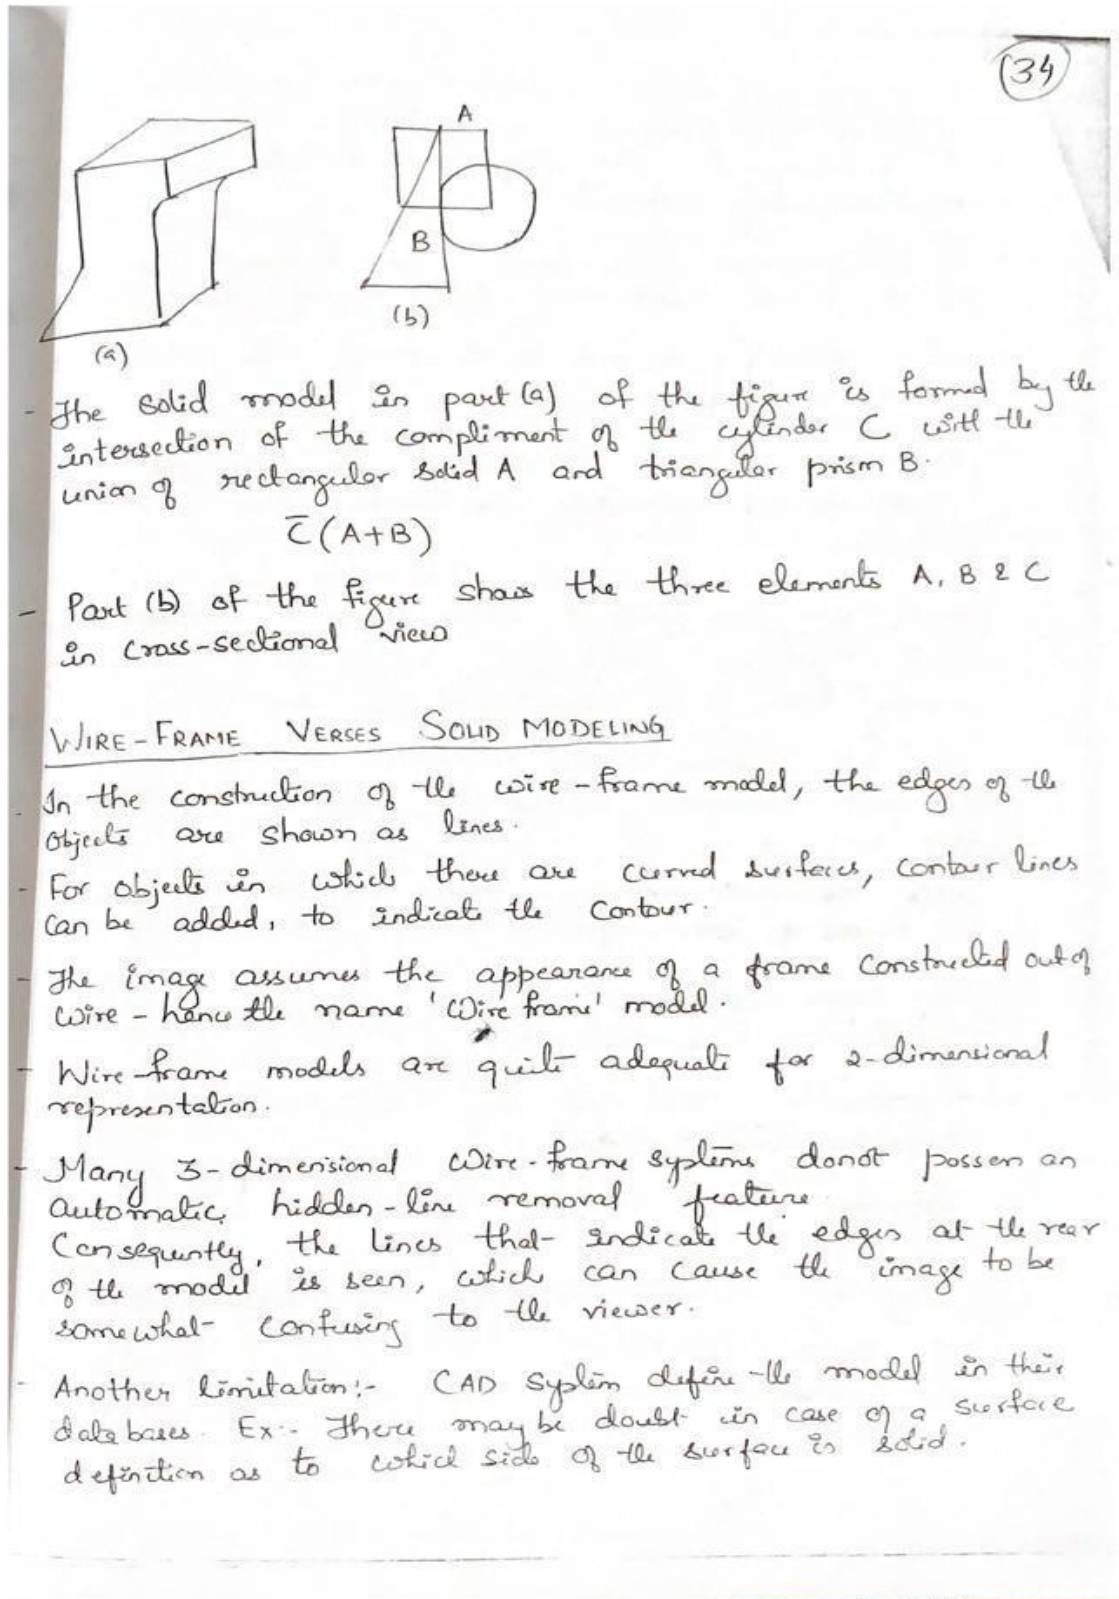 34
A
B
(b)
(a)
- The solid model in part (a) of the figure is formed by the
intersection of the compliment of the cylinder C with the
union of rectangular solid A and triangular prism B.
C̅(A+B)
- Part (b) of the figure shows the three elements A, B & C
in cross-sectional view
WIRE-FRAME VERSES SOLID MODELING
- In the construction of the wire-frame model, the edges of the
objects are shown as lines.
- For objects in which there are curved surfaces, contour lines
can be added, to indicate the contour.
- The image assumes the appearance of a frame constructed out of
wire - hence the name 'Wire frame' model.
- Wire-frame models are quite adequate for 2-dimensional
representation.
- Many 3-dimensional wire-frame systems donot possess an
automatic, hidden-line removal feature
Consequntly, the lines that indicate the edges at the rear
of the model is seen, which can cause the image to be
somewhat confusing to the viewer.
- Another limitation:- CAD system define the model in their
data bases. Ex:- There may be doubt in case of a surface
definition as to which side of the surface is solid.